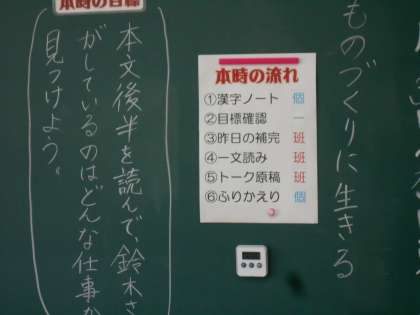 ものづくりに生きる
本時の流れ
①漢字ノート 個
②目標確認 一
③昨日の補完 班
④一文読み 班
⑤トーク原稿 班
⑥ふりかえり 個
本時の目標
本文後半を読んで、鈴木さ
がしているのはどんな仕事か
見つけよう。